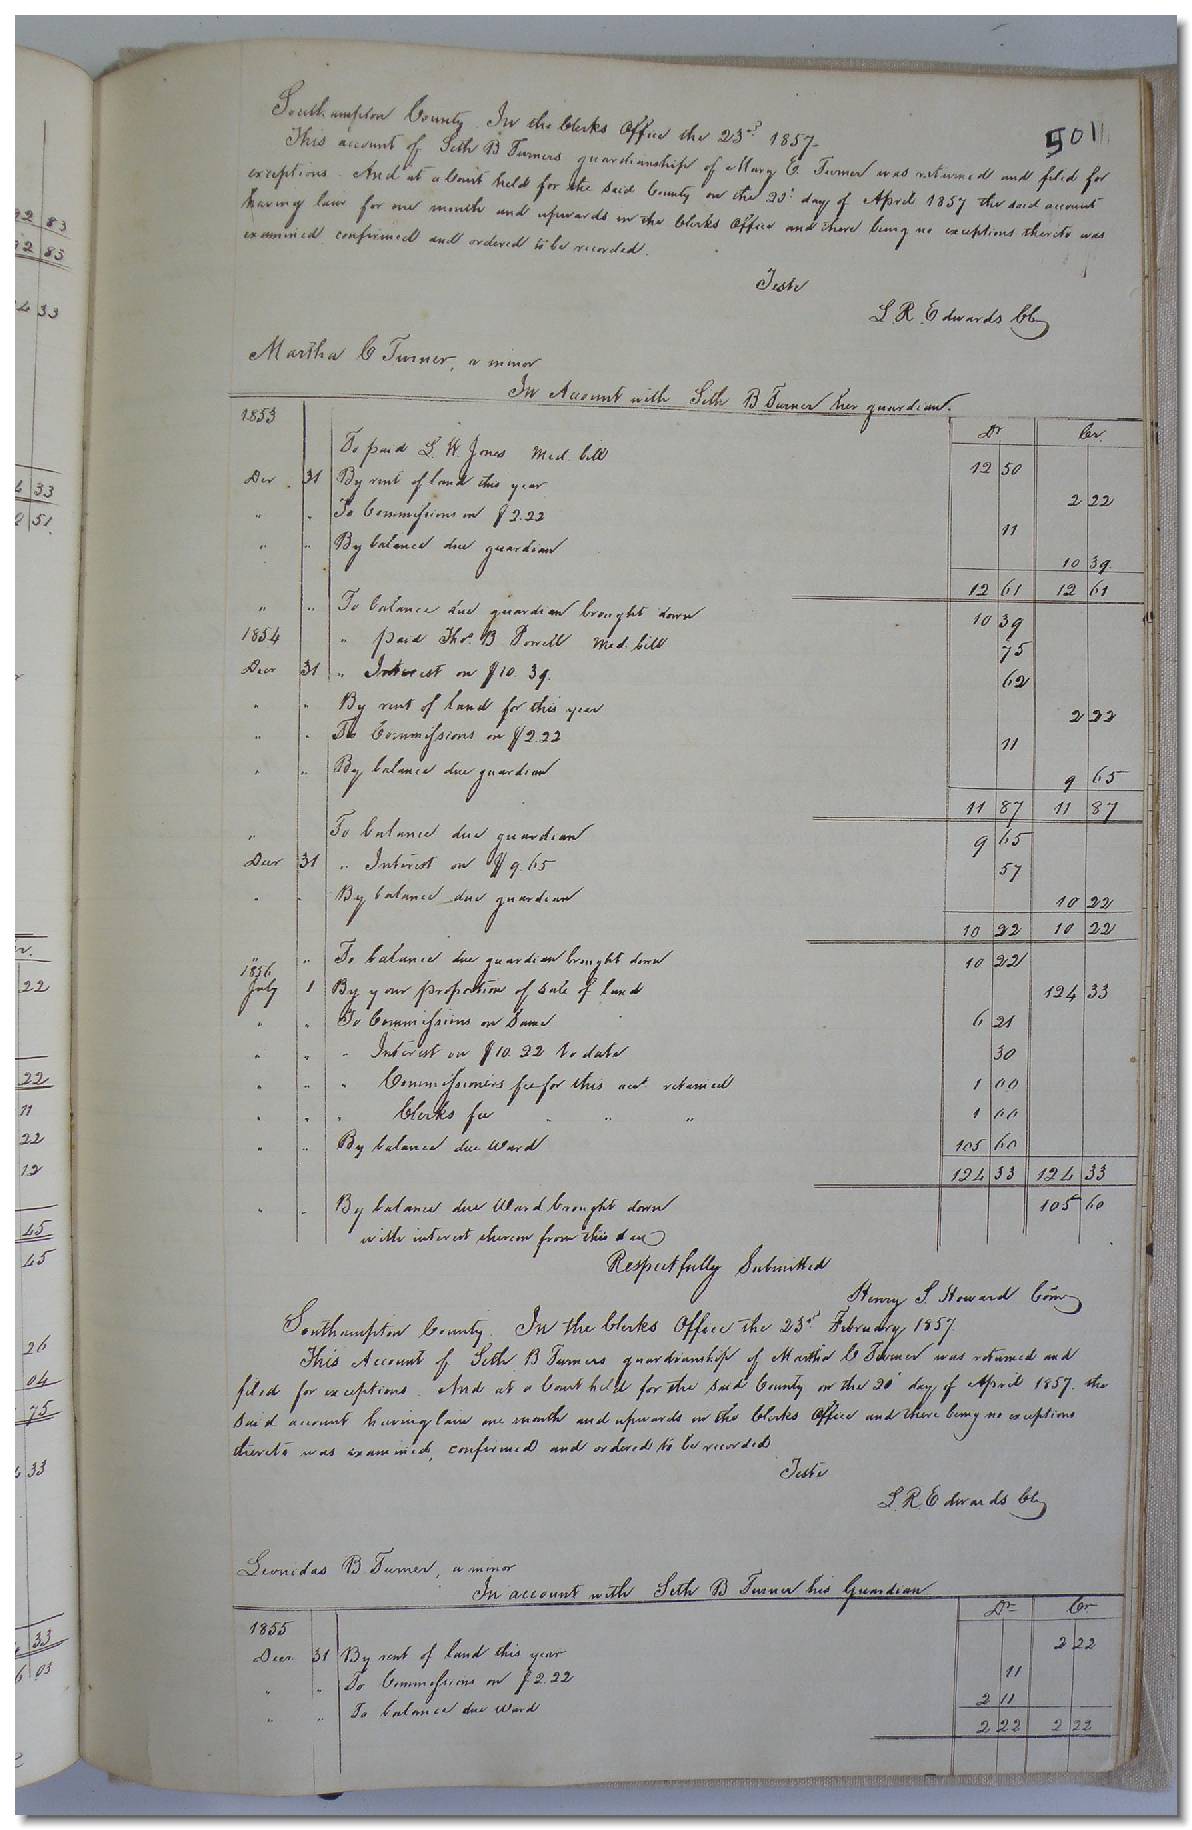 501
Southampton County. In the Clerks Office the 23rd 1857.
This account of Seth B Turners guardianship of Mary E. Turner was returned and filed for
exceptions. And at a Court held for the said County on the 20' day of April 1857 the said account
having lain for one month and upwards in the Clerks Office and there being no exceptions thereto was
examined confirmed and ordered to be recorded.
Teste
L. R. Edwards Clk
Martha C Turner, a minor
In Account with Seth B Turner her guardian.
1853 Dr Cr.
To paid L. W. Jones Med. bill 12 50
Decr. 31 By rent of land this year 2 22
" " To Commissions on $2.22 11
" " By balance due guardian 10 39.
12 61 12 61
" " To balance due guardian brought down 10 39
1854 " paid Thos. B Powell Med. bill 75
Decr 31 " Interest on $10.39. 62
" " By rent of land for this year 2 22
" " To Commissions on $2.22 11
" " By balance due guardian 9 65
11 87 11 87
" To balance due guardian 9 65
Decr 31 " Interest on $9.65 57
" " By balance due guardian 10 22
10 22 10 22
" " To balance due guardian brought down 10 22
1856
July 1 By your proportion of sale of land 124 33
" " To Commissions on Same 6 21
" " " Interest on $10.22 to date 30
" " " Commissioners fee for this act. returned 1 00
" " " Clerks fee " " 1 00
" " By balance due Ward 105 60
124 33 124 33
" " By balance due Ward brought down 105 60
with interest thereon from this date
Respectfully Submitted
Henry S. Howard Comr
Southampton County. In the Clerks Office the 23rd February 1857.
This Account of Seth B Turners guardianship of Martha C Turner was returned and
filed for exceptions. And at a Court held for the said County on the 20' day of April 1857. the
said account having lain one month and upwards in the Clerks Office and there being no exceptions
thereto was examined, confirmed and ordered to be recorded
Teste
L. R. Edwards Clk
Leonidas B. Turner, a minor
In account with Seth B Turner his Guardian
1855 Dr Cr
Decr. 31 By rent of land this year 2 22
" " To Commissions on $2.22 11
" " To balance due Ward 2 11
2 22 2 22